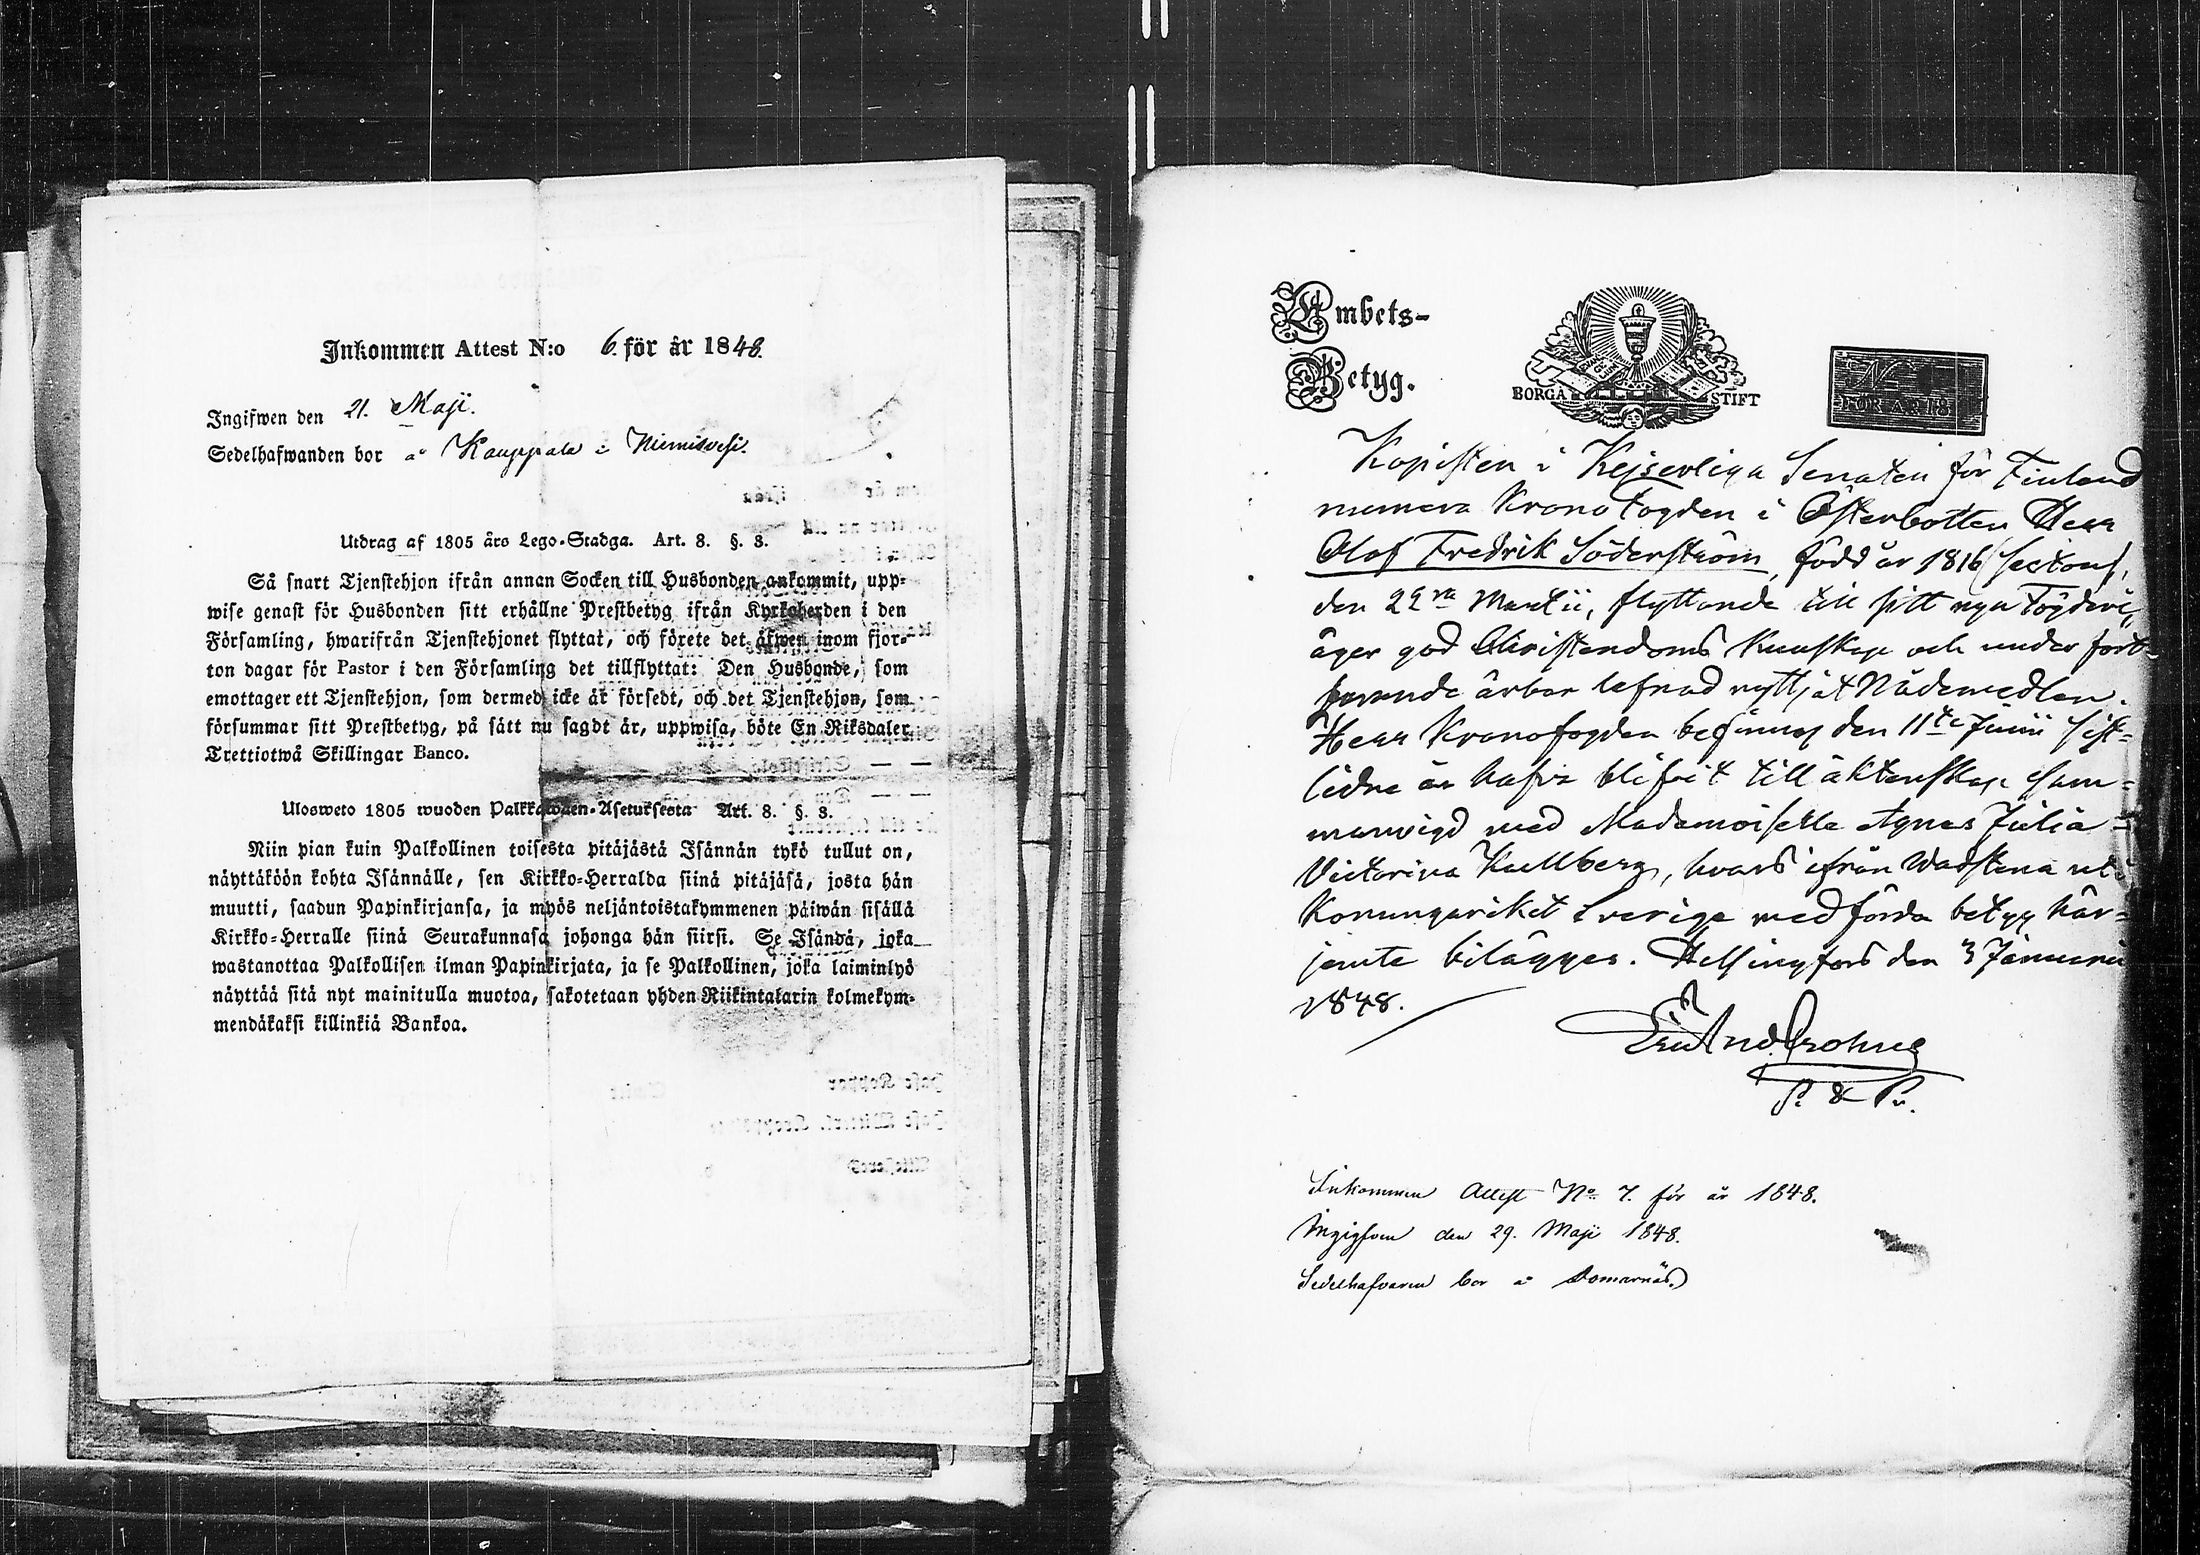 Inkommen Attest N:o 6. för år 1848.
Ingifwen den 21. Maji.
Sedelhafwanden bor å Kauppala i Niemisvesi.
Utdrag af 1805 års Lego-Stadga. Art. 8. §. 3.
Så snart Tjenstehjon ifrån annan Socken till Husbonden ankommit, upp-
wise genast för Husbonden sitt erhållne Prestbetyg ifrån Kyrkoherden i den
Församling, hwarifrån Tjenstehjonet flyttat, och förete det äfwen inom fjor-
ton dagar för Pastor i den Församling det tillflyttat: Den Husbonde, som
emottager ett Tjenstehjon, som dermed icke är försedt, och det Tjenstehjon, som
försummar sitt Prestbetyg, på sätt nu sagdt är, uppwisa, böte En Riksdaler
Trettiotwå Skillingar Banco.
Ulosweto 1805 wuoden Palkkawäen-Asetuksesta Art. 8. §. 3.
Niin pian kuin Palkollinen toisesta pitäjästä Isännän tykö tullut on,
näyttäköön kohta Isännälle, sen Kirkko-Herralda siinä pitäjäsä, josta hän
muutti, saadun Papinkirjansa, ja myös neljäntoistakymmenen päiwän sisällä
Kirkko-Herralle siinä Seurakunnasa johonga hän siirsi. Se Isändä, joka
wastanottaa Palkollisen ilman Papinkirjata, ja se Palkollinen, joka laiminlyö
näyttää sitä nyt mainitulla muotoa, sakotetaan yhden Riikintalarin kolmekym-
mendäkaksi killinkiä Bankoa.
Ambets-
Betyg.
BORGÅ STIFT
N
FÖR ÅR 18
Kopisten i Kejserliga Senaten för Finland
numera Kronofogden i Österbotten Herr
Olof Fredrik Söderström, född år 1816 (sexton),
den 22ra Martii, flyttande till sitt nya Fögderi,
äger god Christendoms Kunskap och under fort-
farande ärbar lefnad nyttjat Nådemedlen.
Herr Kronofogden befinnes den 11te Junii sist-
lidne år hafva blifvit till äktenskap sam-
manvigd med Mademoiselle Agnes Julia
Victorina Kullberg, hvars ifrån Wadstena uti
Konungariket Sverige medförda betyg här-
jemte bilägges. Helsingfors den 3 Januarii
1848.
And. Crohns
P. & Pr.
Inkommen Attest No 7. för år 1848.
Ingifven den 29. Maji 1848.
Sedelhafvaren bor å Domarnäs.